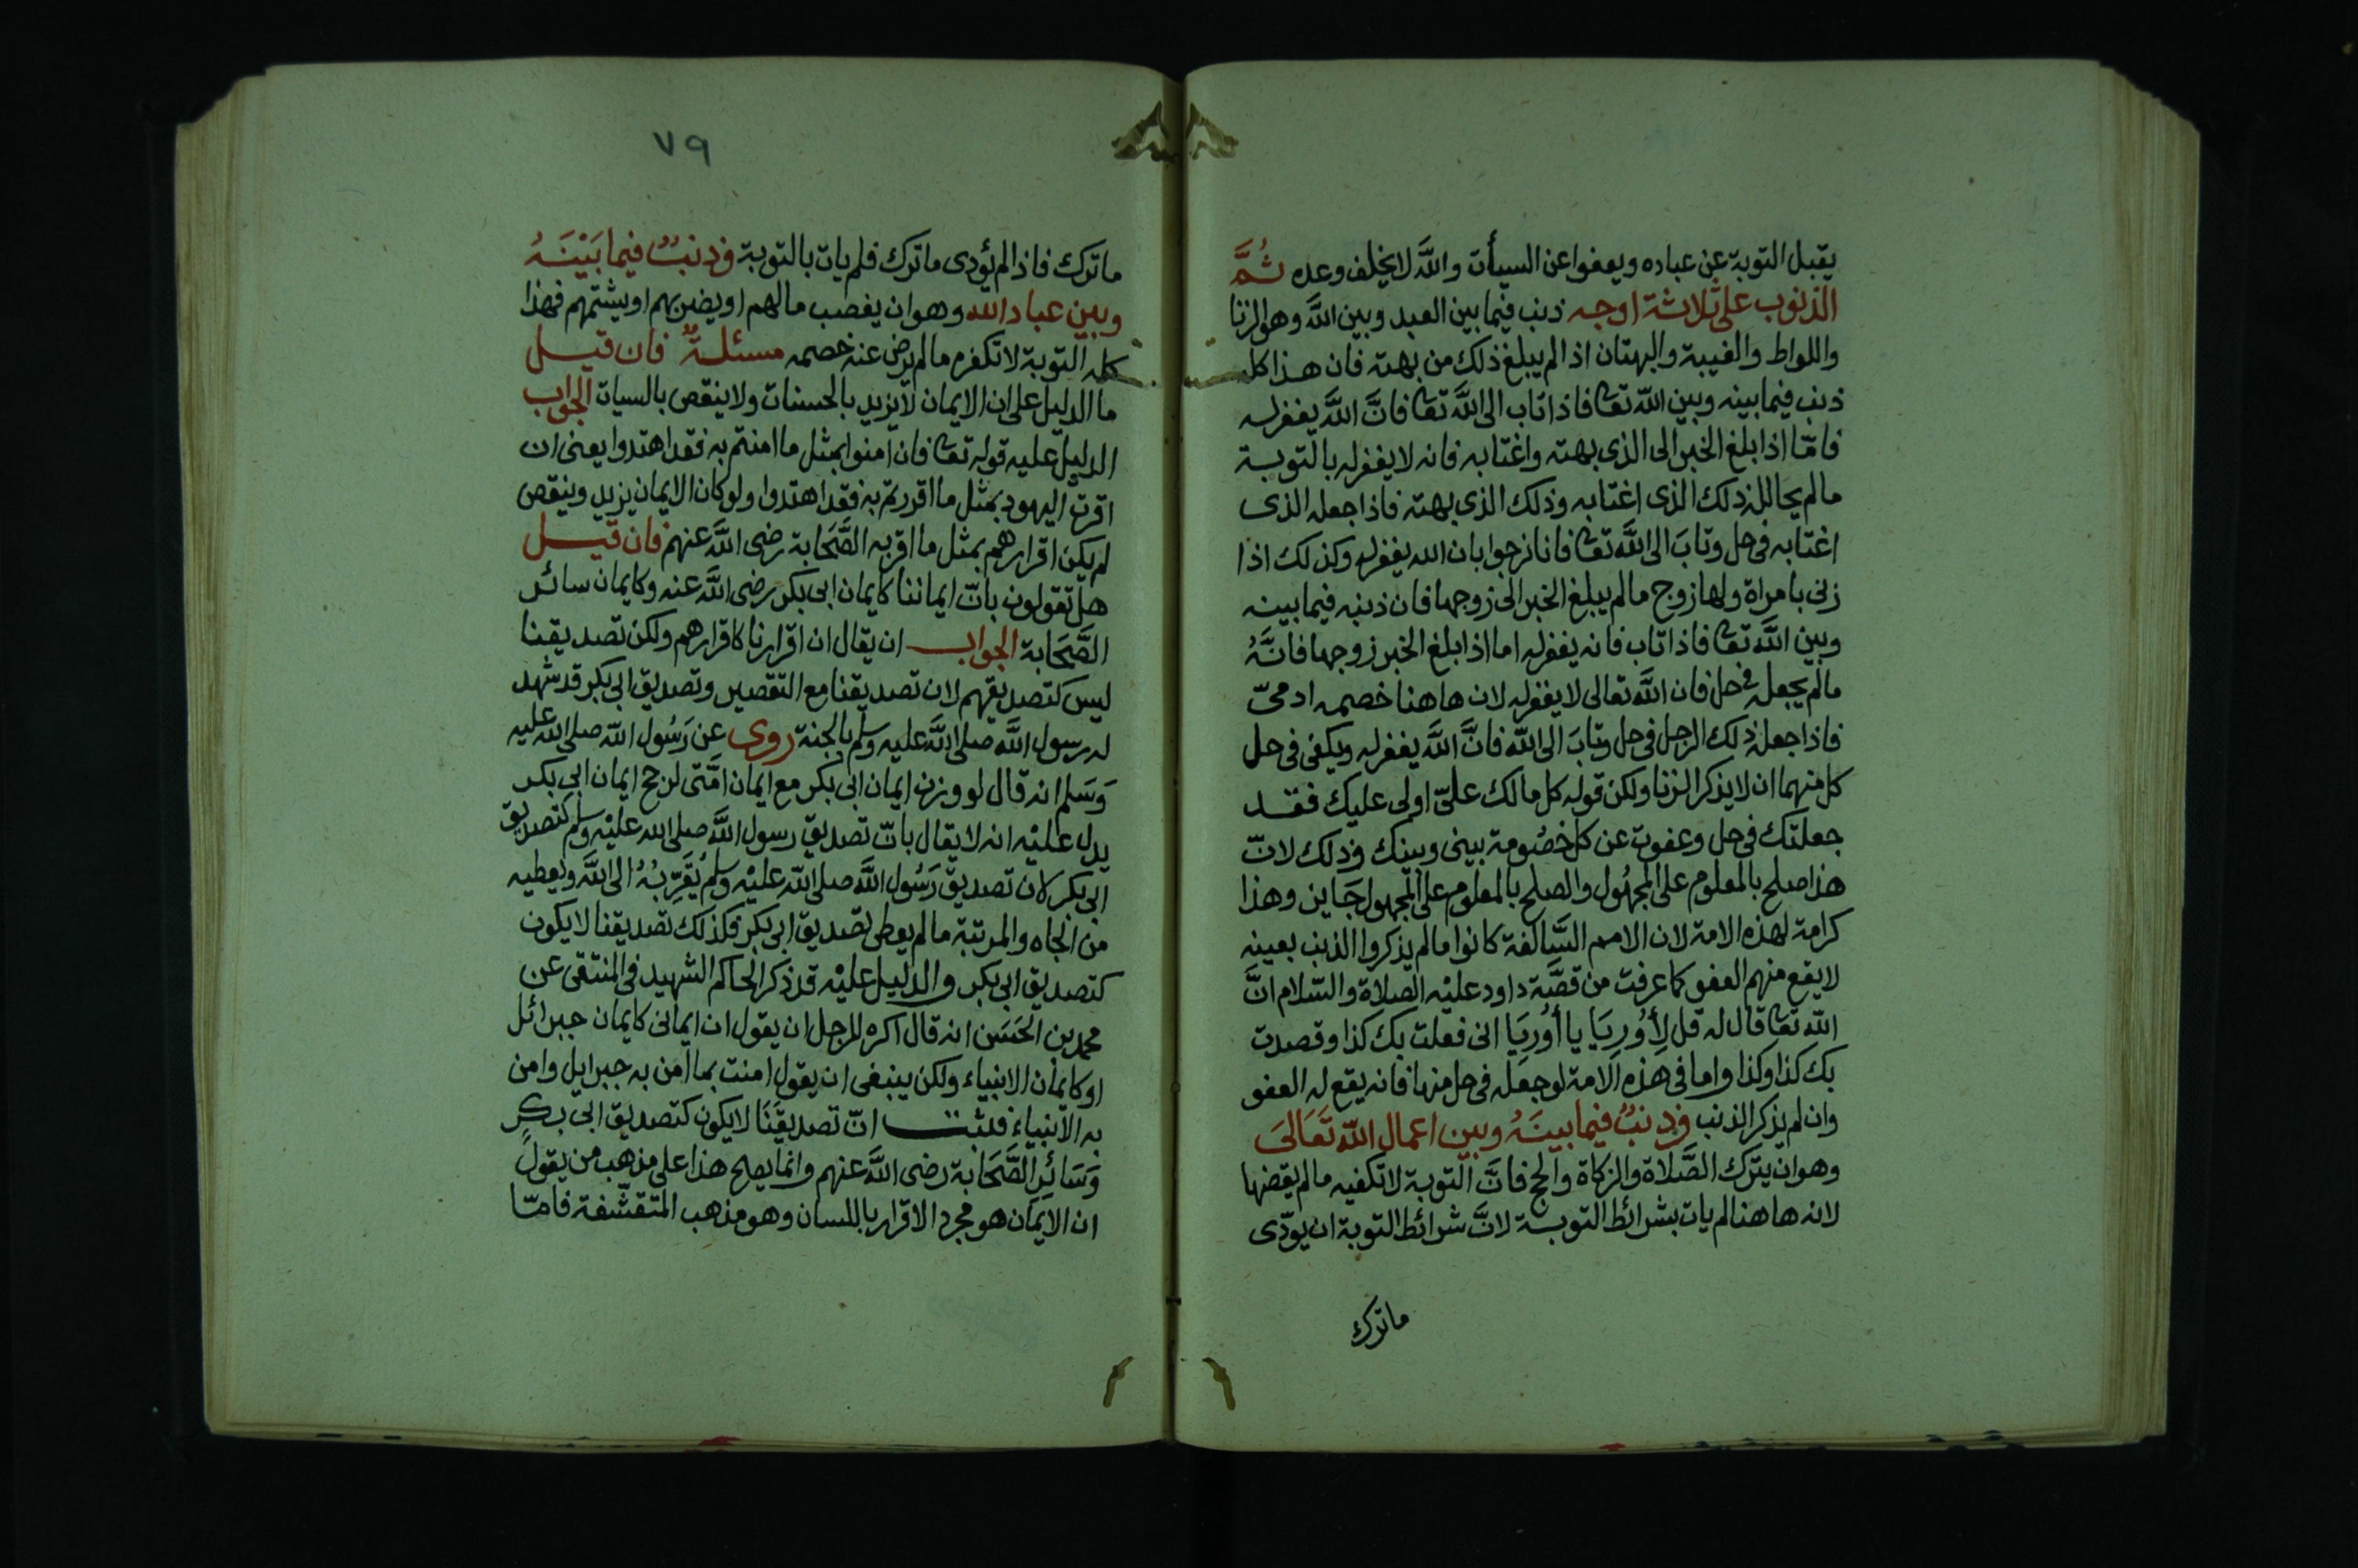 يقبل التوبة عن عباده ويعفوا عن السيأت والله لا يخلف وعده ثُمَّ
الذنوب على ثلاثة اوجه ذنب فيما بين العبد وبين الله وهو الزنا
واللواط والغيبة والبهتان اذا لم يبلغ ذلك من بهته فان هذا كله
ذنب فيما بينه وبين الله تعا فاذا تاب الى الله تعا فانَّ الله يغفر له
فامّا اذا بلغ الخبر الى الذي بهته واغتابه فانه لا يغفر له بالتوبة
مالم يحالله ذلك الذى اغتابه وذلك الذى بهته فاذا جعله الذى
اغتابه فى حل وتابَ الى الله تعا فانا نرجوا بان الله يغفر له وكذلك اذا
زنى بامراة ولها زوج مالم يبلغ الخبر الى زوجها فان ذنبه فيما بينه
وبين الله تعا فاذا تاب فانه يغفر له اما اذا بلغ الخبر زوجها فانَّهُ
مالم يجعله فى حل فان الله تعالى لا يغفر له لان هاهنا خصمه ادمىّ
فاذا جعله ذلك الرجل فى حل وتابَ الى الله فانَّ الله يغفر له ويكفى فى حل
كل منهما ان لا يذكر الزنا ولكن قوله كل مالك علىّ اولى عليك فقد
جعلتك فى حل وعفوت عن كل خصُومة بينى وبينك وذلك لانّ
هذا صلح بالمعلوم على المجهُول والصلح بالمعلوم على المجهول جَاين وهذا
كرامة لهذه الامة لان الامم السَّالفة كانوا مالم يذكروا الذنب بعينه
لا يقع منهم العفو كما عرفت من قصَّة داود عليْه الصلاة والسّلام انَّ
الله تعا قال له قل لِأوُرِيَا يا أوُرِيَا انى فعلت بك كذا وقصدت
بك كذا وكذا واما فى هذه الامة لو جعله فى حل منها فانه يقع له العفو
وان لم يذكر الذنب وذنبٌ فيما بينَهُ وبين اعمال الله تَعَالىَ
وهو ان يترك الصَّلاة والزكاة والحج فانَّ التوبة لا تكفيه مالم يقضها
لانه هاهنا لم يات بشرائط التوبة لانَّ شرائط التوبة ان يودّى
ماترك
٧٩
ماترك فاذا لم يؤدى ماترك فلم يات بالتوبة وذنبٌ فيما بَيْنَهُ
وبين عباد الله وهو ان يغصب مالهم او يضربهم او يشتمهم فهذا
كله التوبة لا تكفر مالم يرض عنه خصمه مسئلةٌ فان قيل
ما الدليل على ان الايمان لا يزيد بالحسنات ولا ينقص بالسيات الجواب
الدليل عليه قوله تعا فان امنوا بمثل ما امنتم به فقد اهتدوا يعنى ان
اقرت اليهود بمثل ما اقررتم به فقد اهتدوا ولو كان الايمان يزيد وينقص
لم يكن اقرارهم بمثل ما اقر به الصَّحَابة رضى الله عنهم فان قيل
هل تقولون بانّ ايماننا كايمان ابى بكر رضى الله عنه وكايمان سائر
الصَّحَابة الجواب ان يقال ان اقرارنا كاقرارهم ولكن تصديقنا
ليس كتصديقهم لان تصديقنا مع التقصير وتصديق ابى بكر قد شهد
له رسول الله صلى الله عليه وسلم بالجنة روى عن رَسُول الله صلى الله عليه
وَسَلم انه قال لو وزن ايمان ابى بكر مع ايمان امَّتى لرجح ايمان ابى بكر
يدل عليْه انه لا يقال بانّ تصديق رسول الله صلى الله عليْه وسلم كتصديق
ابى بكر لان تصديق رَسُول الله صلى الله عليْه وسلم يُقَرِّبُهُ الى الله ويعطيه
من الجاه والمرتبة مالم يعطى تصديق ابى بكر فكذلك تصديقنا لا يكون
كتصديق ابى بكر والدليل عليْه قد ذكر الحاكم الشهيد فى المنتقى عن
محمد بن الحَسَن انه قال اكره للرجل ان يقول ان ايمانى كايمان جبرائل
او كايمان الانبياء ولكن ينبغى ان يقول امنت بما امن به جبرايل وامن
به الانبياء فثبت انّ تصديقَنَا لا يكون كتصديق ابى بكرٍ
وَسَائِر الصَّحَابة رضى الله عنهم وانما يصلح هذا على مذهب من يقول
ان الايمان هو مجرد الاقرار باللسان وهو مذهب المتقشّفة فامّا